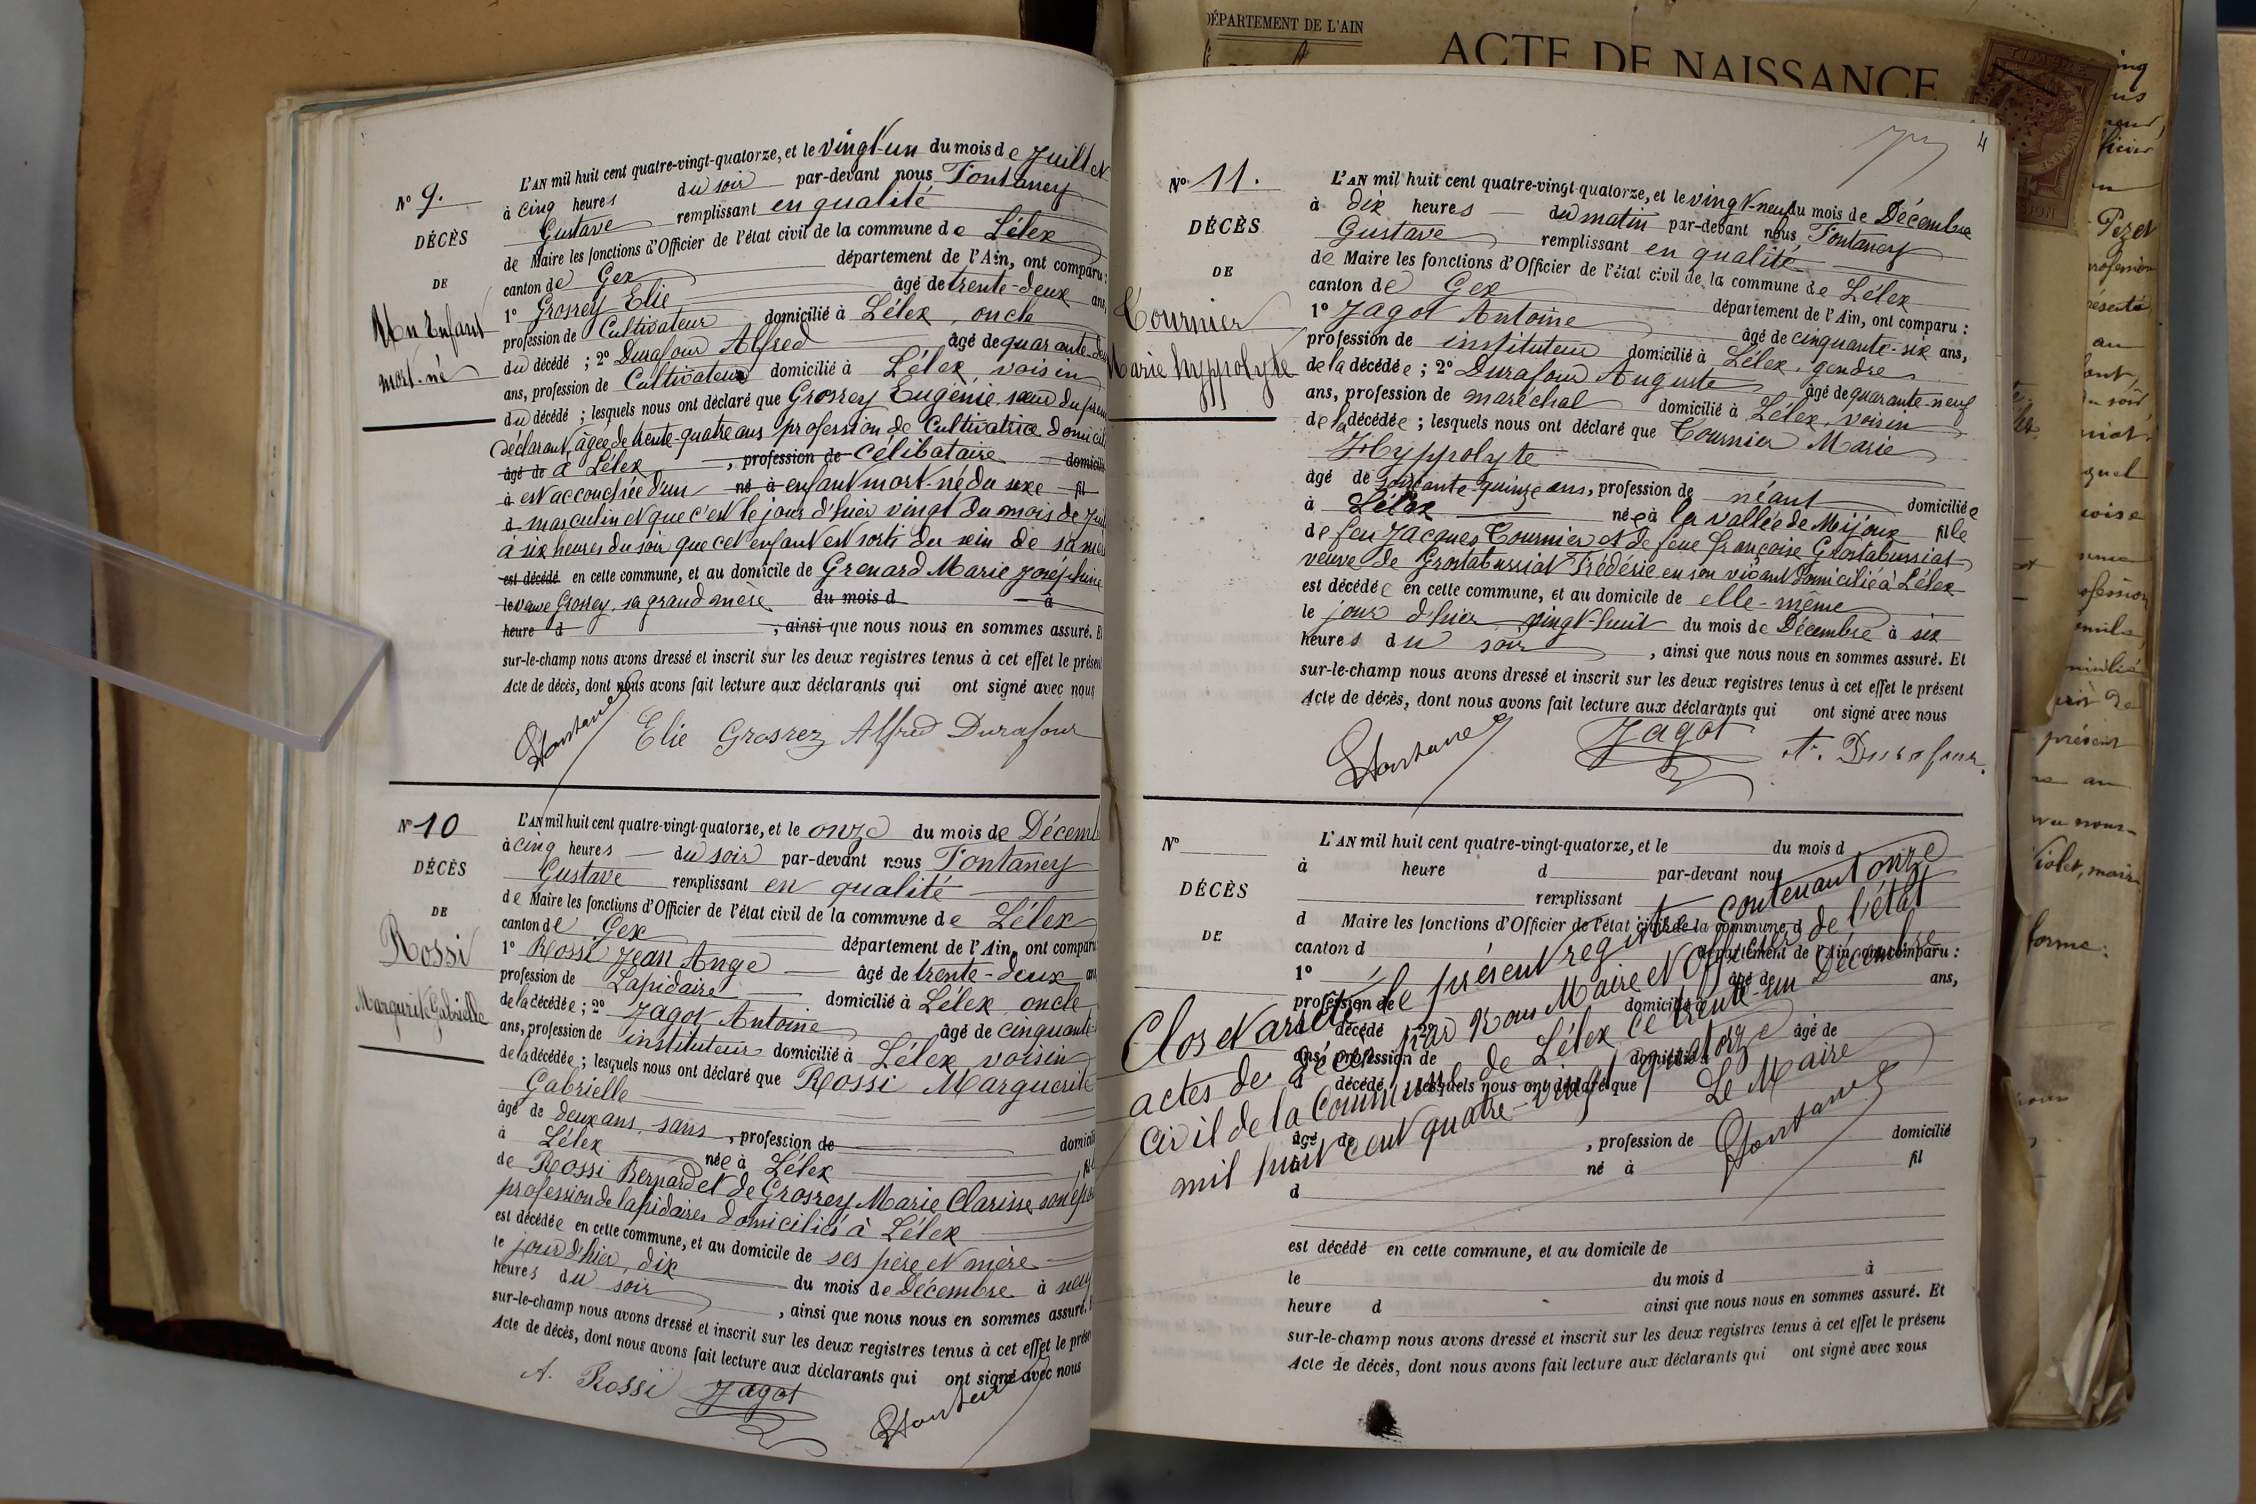 DÉPARTEMENT DE L'AIN
ACTE DE NAISSANCE
N° 9.
DÉCÈS
DE
Un Enfant
mort-né
L'AN mil huit cent quatre-vingt-quatorze, et le vingt-un du mois de Juillet
à cinq heures du soir par-devant nous Fontaney
Gustave remplissant en qualité
de Maire les fonctions d'Officier de l'état civil de la commune de Lélex
canton de Gex département de l'Ain, ont comparu :
1° Grosrey Elie âgé de trente-deux ans,
profession de Cultivateur domicilié à Lélex, oncle
du décédé ; 2° Durafour Alfred âgé de quarante-deux
ans, profession de Cultivateur domicilié à Lélex, voisin
du décédé ; lesquels nous ont déclaré que Grosrey Eugénie, sœur du
déclarant, âgée de trente-quatre ans profession de Cultivatrice
âgé de à Lélex , profession de célibataire
à est accouchée d'un né à enfant mort-né du sexe fil
d masculin et que c'est le jour d'hier vingt du mois de
à six heures du soir que cet enfant est sorti du sein de sa
est décédé en cette commune, et au domicile de Grenard Marie Joséphine
le veuve Grosrey, sa grand mère du mois d à
heure d , ainsi que nous nous en sommes assuré. Et
sur-le-champ nous avons dressé et inscrit sur les deux registres tenus à cet effet le présent
Acte de décès, dont nous avons fait lecture aux déclarants qui ont signé avec nous
Elie Grosrey Alfred Durafour
N° 10
DÉCÈS
DE
Rossi
Margurite Gabrielle
L'AN mil huit cent quatre-vingt-quatorze, et le onze du mois de Décemb
à cinq heures du soir par-devant nous Fontaney
Gustave remplissant en qualité
de Maire les fonctions d'Officier de l'état civil de la commune de Lélex
canton de Gex département de l'Ain, ont comparu
1° Rossi Jean Ange âgé de trente-deux ans
profession de Lapidaire domicilié à Lélex, oncle
de la décédée ; 2° Jagot Antoine âgé de cinquante-
ans, profession de instituteur domicilié à Lélex voisin
de la décédée ; lesquels nous ont déclaré que Rossi Marguerite
Gabrielle
âgé de deux ans, sans , profession de
à Lélex née à Lélex
de Rossi Bernard et de Grosrey Marie Clarisse son
profession de lapidaires domiciliés à Lélex
est décédée en cette commune, et au domicile de ses père et mère
le jour d'hier, dix du mois de Décembre à neuf
heures du soir , ainsi que nous nous en sommes assuré.
sur-le-champ nous avons dressé et inscrit sur les deux registres tenus à cet effet le présen
Acte de décès, dont nous avons fait lecture aux déclarants qui ont signé avec nous
A. Rossi Jagot
4
N° 11.
DÉCÈS
DE
Tournier
Marie hyppolyte
L'AN mil huit cent quatre-vingt-quatorze, et le vingt-neuf du mois de Décembre
à dix heures du matin par-devant nous Fontaney
Gustave remplissant en qualité
de Maire les fonctions d'Officier de l'état civil de la commune de Lélex
canton de Gex département de l'Ain, ont comparu :
1° Jagot Antoine âgé de cinquante-six ans,
profession de instituteur domicilié à Lélex, gendre
de la décédée ; 2° Durafour Auguste âgé de quarante-neuf
ans, profession de maréchal domicilié à Lélex, voisin
de la décédée ; lesquels nous ont déclaré que Tournier Marie
Hyppolyte
âgé de soixante-quinze ans, profession de néant domiciliée
à Lélex née à la vallée de Mijoux fille
de feu Jacques Tournier et de feue françoise Grostabussiat
veuve de Grostabussiat Frédéric en son vivant domicilié à Lélex
est décédée en cette commune, et au domicile de elle-même
le jour d'hier vingt-huit du mois de Décembre à six
heures du soir , ainsi que nous nous en sommes assuré. Et
sur-le-champ nous avons dressé et inscrit sur les deux registres tenus à cet effet le présent
Acte de décès, dont nous avons fait lecture aux déclarants qui ont signé avec nous
Jagot A. Durafour
N°
DÉCÈS
DE
L'AN mil huit cent quatre-vingt-quatorze, et le du mois d
à heure d par-devant nous
remplissant
d Maire les fonctions d'Officier de l'état civil de la commune d
canton d département de l'Ain, ont comparu :
1° âgé de ans,
profession de domicilié à
décédé ; 2° âgé de
ans, profession de domicilié à
décédé ; lesquels nous ont déclaré que
âgé de , profession de domicilié
à né à fil
d
est décédé en cette commune, et au domicile de
le du mois d à
heure d ainsi que nous nous en sommes assuré. Et
sur-le-champ nous avons dressé et inscrit sur les deux registres tenus à cet effet le présent
Acte de décès, dont nous avons fait lecture aux déclarants qui ont signé avec nous
Clos et arrêté le présent registre contenant onze
actes de décès par Nous Maire et Officier de l'état
civil de la Commune de Lélex ce trente-un Décembre
mil huit cent quatre-vingt quatorze
Le Maire
Pezet
Violet, maire
forme: